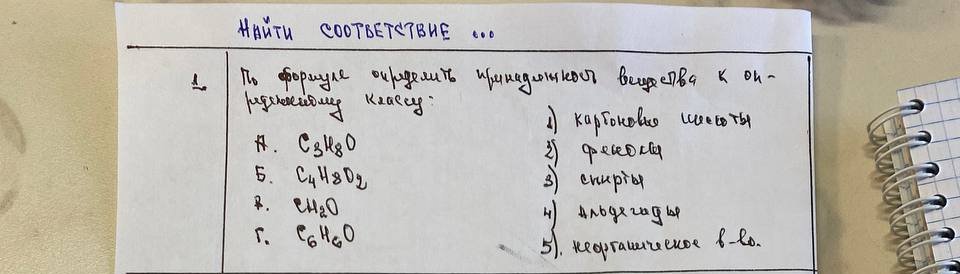 НАЙТИ СООТВЕТСТВИЕ ...
1. По формуле определить принадлежность вещества к оп-
ределенному классу:
А. C3H8O
Б. C4H8O2
В. CH2O
Г. C6H6O
1) карбоновые кислоты
2) фенолы
3) спирты
4) альдегиды
5). неорганическое в-во.